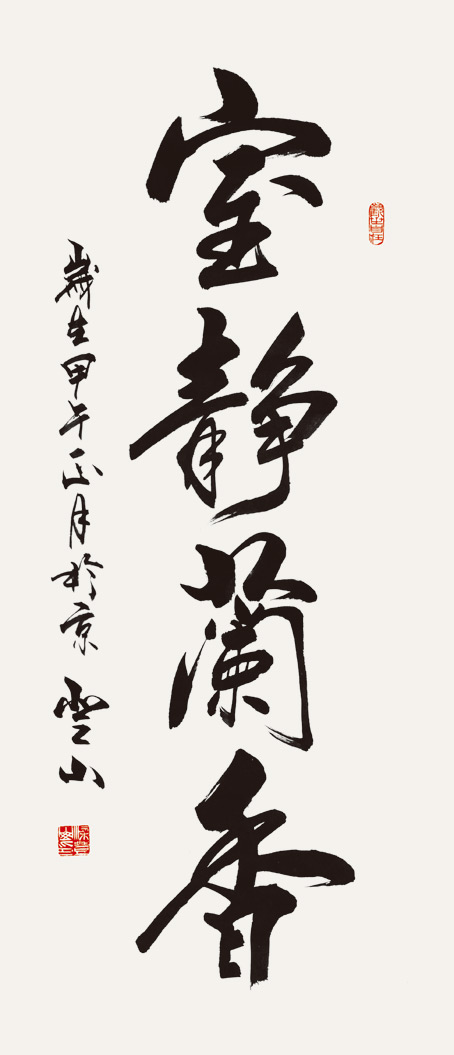 室靜蘭香
歲在甲午正月於京 雲山